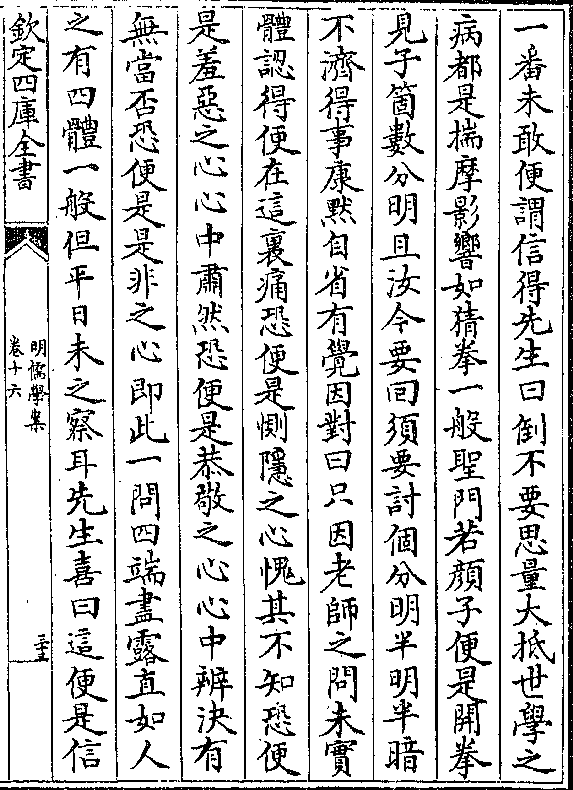 一番未敢便謂信得先生曰倒不要思量大抵世學之
病都是揣摩影響如猜拳一般聖門若顔子便是開拳
見子箇數分明且汝今要囘須要討個分明半明半暗
不濟得事康黙自省有覺因對曰只因老師之問未實
體認得便在這裏痛恐便是惻隱之心愧其不知恐便
是羞惡之心心中肅然恐便是恭敬之心心中辨決有
無當否恐便是是非之心即此一問四端盡露直如人
之有四體一般但平日未之察耳先生喜曰這便是信
欽定四庫全書
明儒學案
卷十六